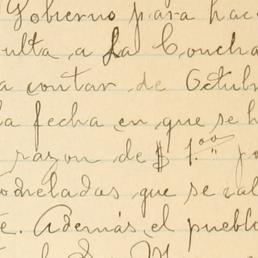 Gobierno para hac
ulta a La Concha
a contar de Octub
la fecha en que se h
razon de $ 1.00 po
odreladas que se val
te. Además el pueblo